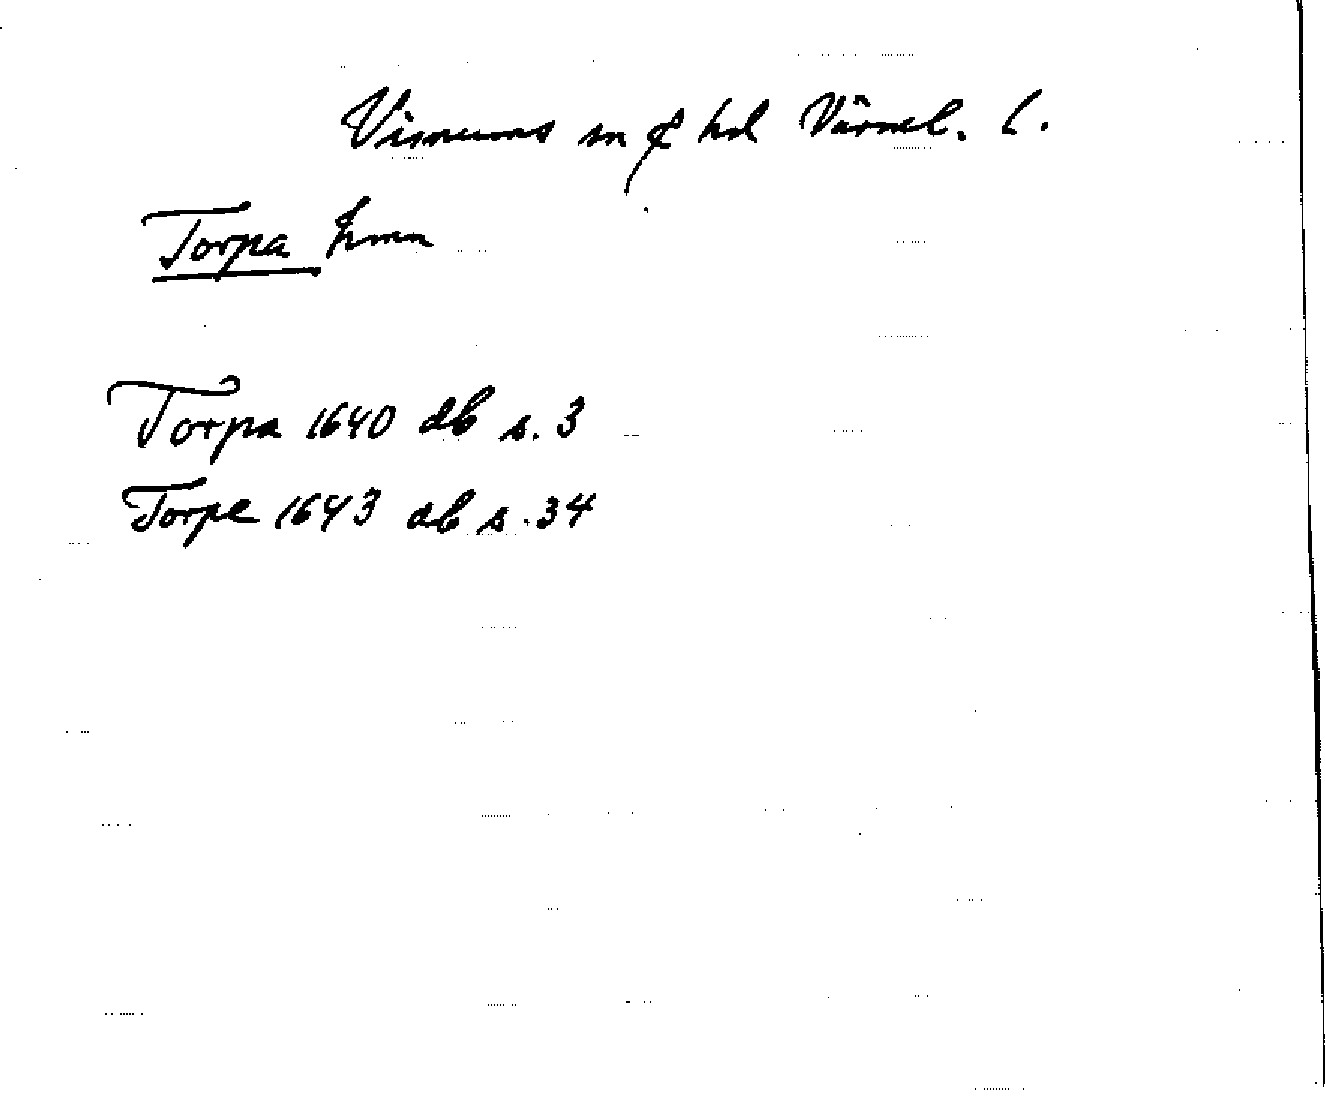 Visnums sn o hd Värml. l.
Torpa hmn
Torpa 1640 db s. 3
Torpe 1643 db s. 34